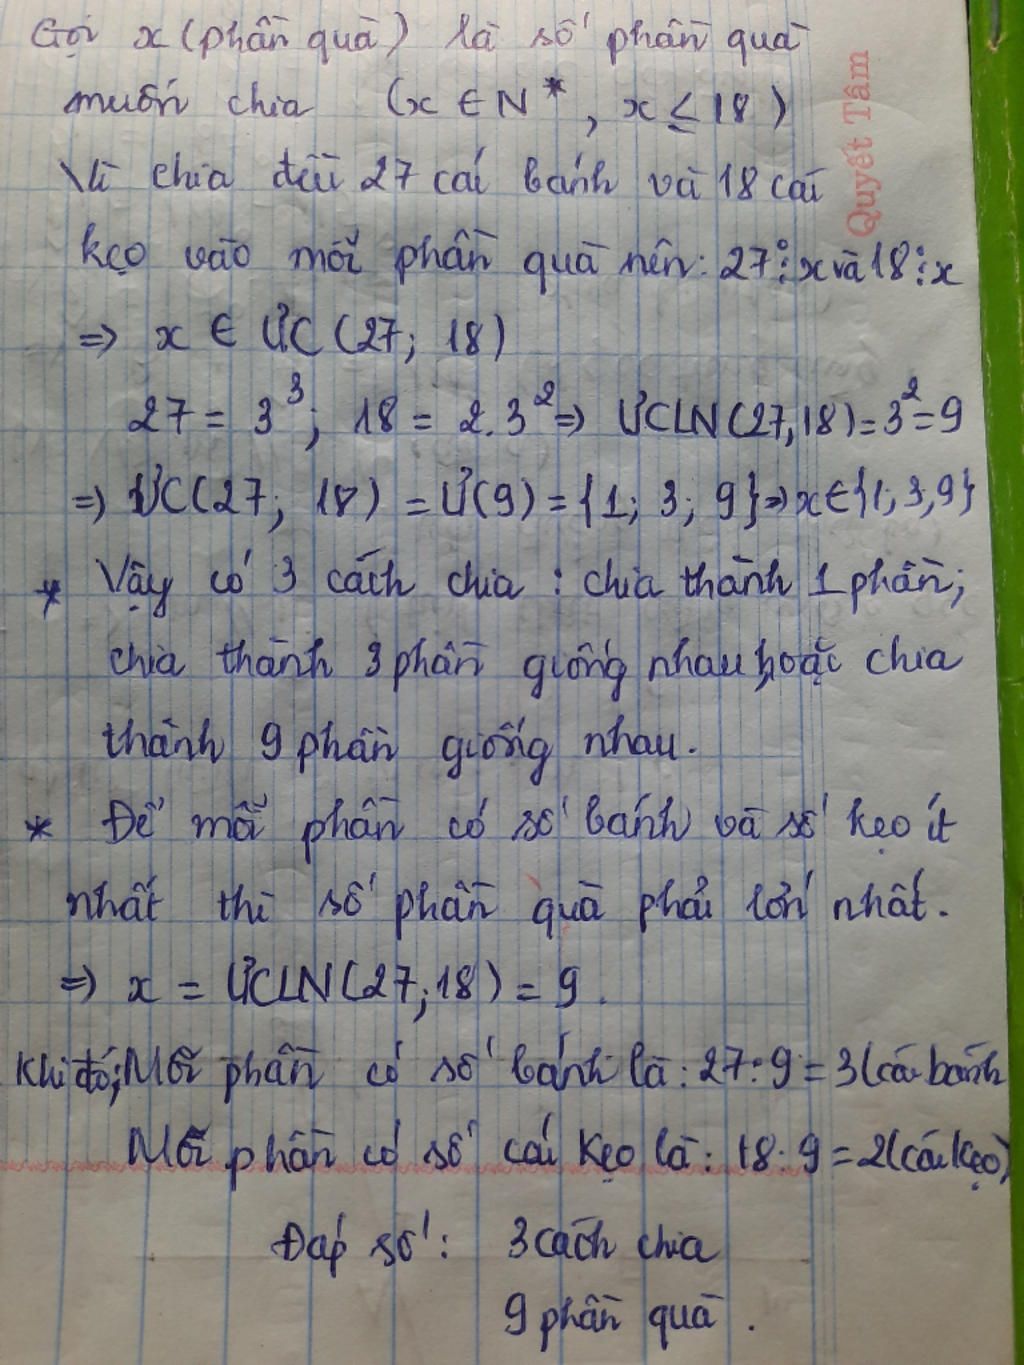 Gọi x (phần quà) là số phần quà
muốn chia (x ∈ N*, x ≤ 18)
Quyết Tâm
Vì chia đều 27 cái bánh và 18 cái
kẹo vào mỗi phần quà nên: 27 ⋮ x và 18 ⋮ x
=> x ∈ ƯC (27; 18)
27 = 3³; 18 = 2.3² => ƯCLN (27, 18) = 3² = 9
=> ƯC(27; 18) = Ư(9) = {1; 3; 9} => x ∈ {1; 3, 9}
* Vậy có 3 cách chia : chia thành 1 phần;
chia thành 3 phần giống nhau hoặc chia
thành 9 phần giống nhau.
* Để mỗi phần có số bánh và số kẹo ít
nhất thì số phần quà phải lớn nhất.
=> x = ƯCLN (27; 18) = 9.
Khi đó; Mỗi phần có số bánh là : 27 : 9 = 3 (cái bánh
Mỗi phần có số cái kẹo là : 18 : 9 = 2 (cái kẹo)
Đáp số : 3 cách chia
9 phần quà .